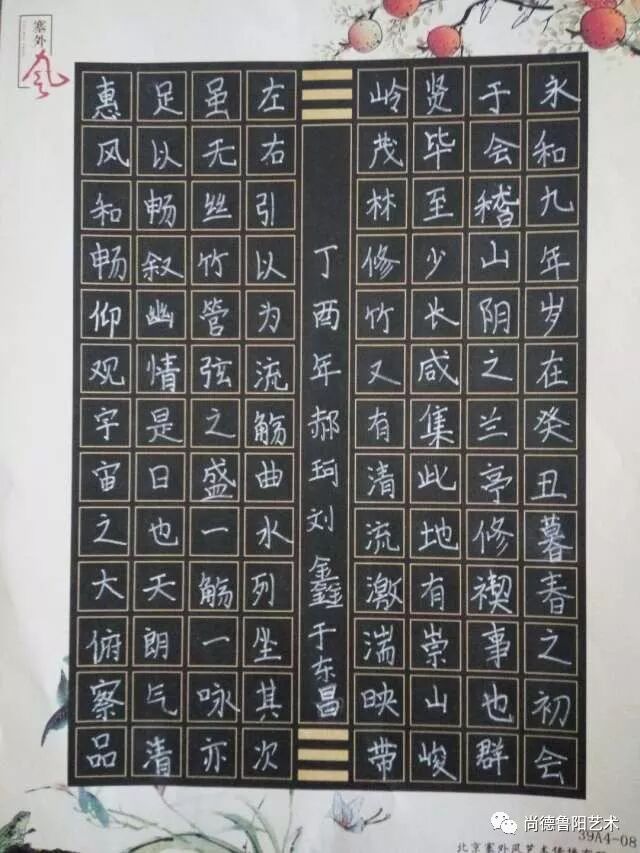 塞外
风
永和九年岁在癸丑暮春之初会
于会稽山阴之兰亭修禊事也群
贤毕至少长咸集此地有崇山峻
岭茂林修竹又有清流激湍映带
丁酉年郝珂刘鑫于东昌
左右引以为流觞曲水列坐其次
虽无丝竹管弦之盛一觞一咏亦
足以畅叙幽情是日也天朗气清
惠风和畅仰观宇宙之大俯察品
尚德鲁阳艺术
39A4-08
北京塞外风艺术